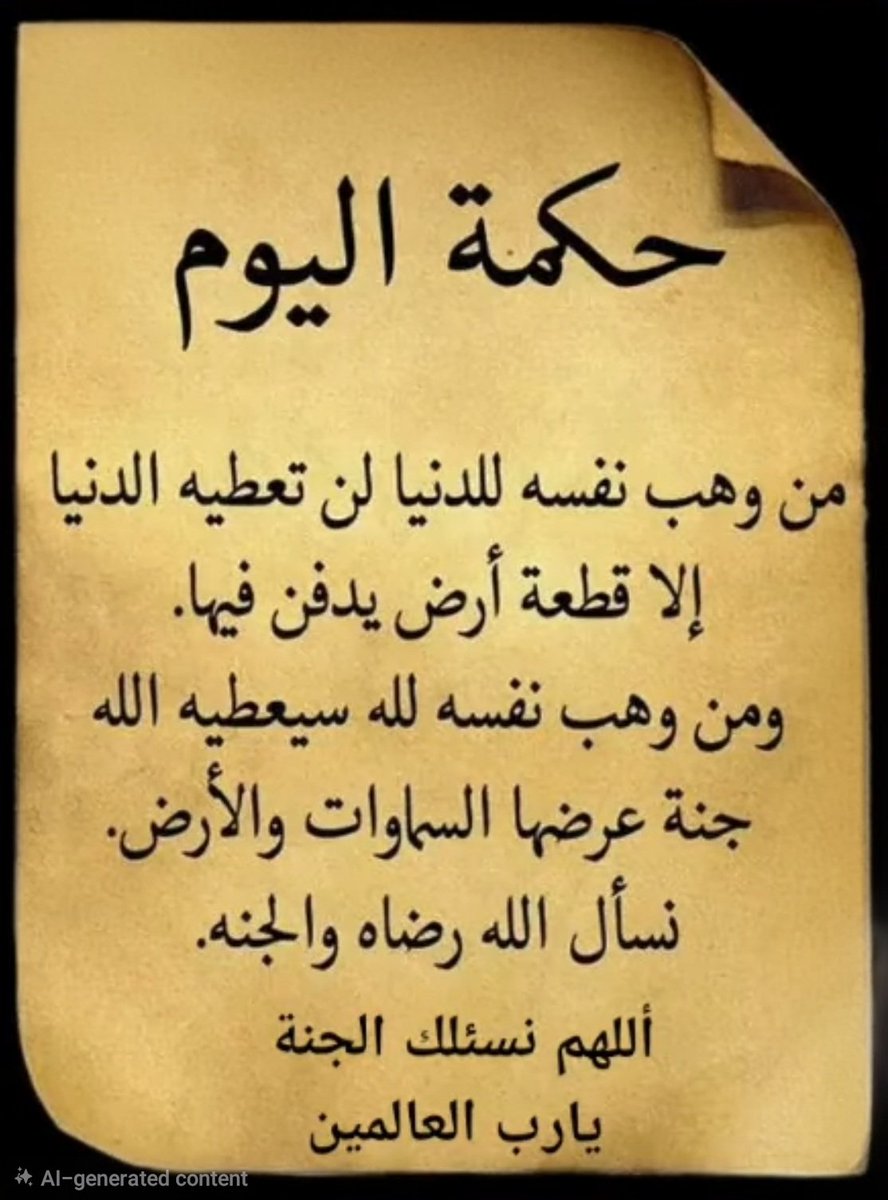 حكمة اليوم
من وهب نفسه للدنيا لن تعطيه الدنيا
إلا قطعة أرض يدفن فيها.
ومن وهب نفسه لله سيعطيه الله
جنة عرضها السماوات والأرض.
نسأل الله رضاه والجنه.
أللهم نسئلك الجنة
يارب العالمين
AI-generated content